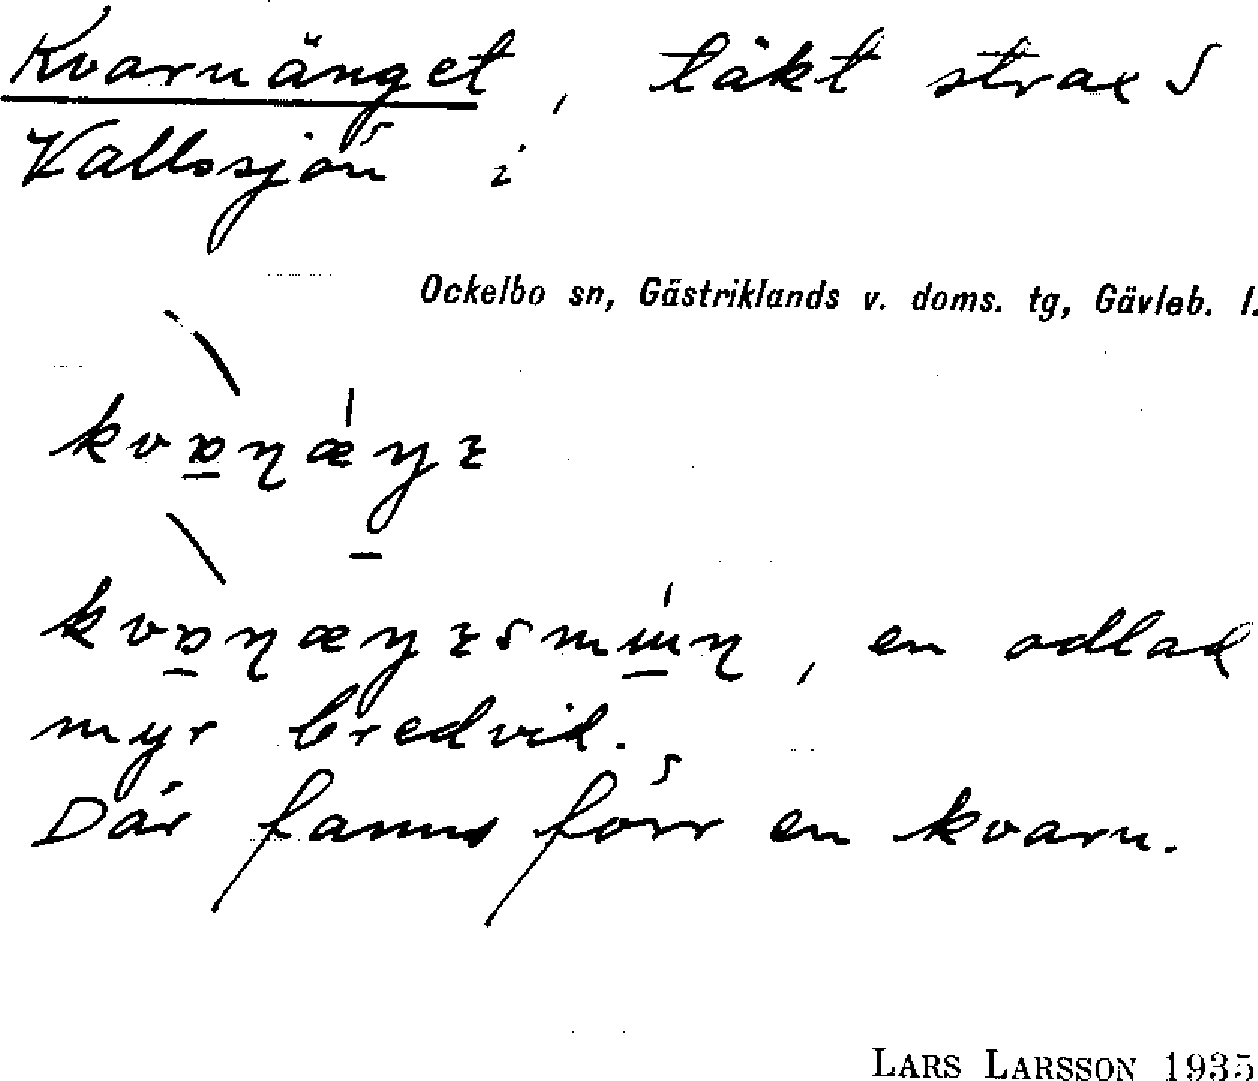 Kvarnänget, täkt strax S
Kallsjön i
Ockelbo sn, Gästriklands v. doms. tg, Gävleb. l.
, en odlad
myr bredvid.
Där fanns förr en kvarn.
LARS LARSSON 1935